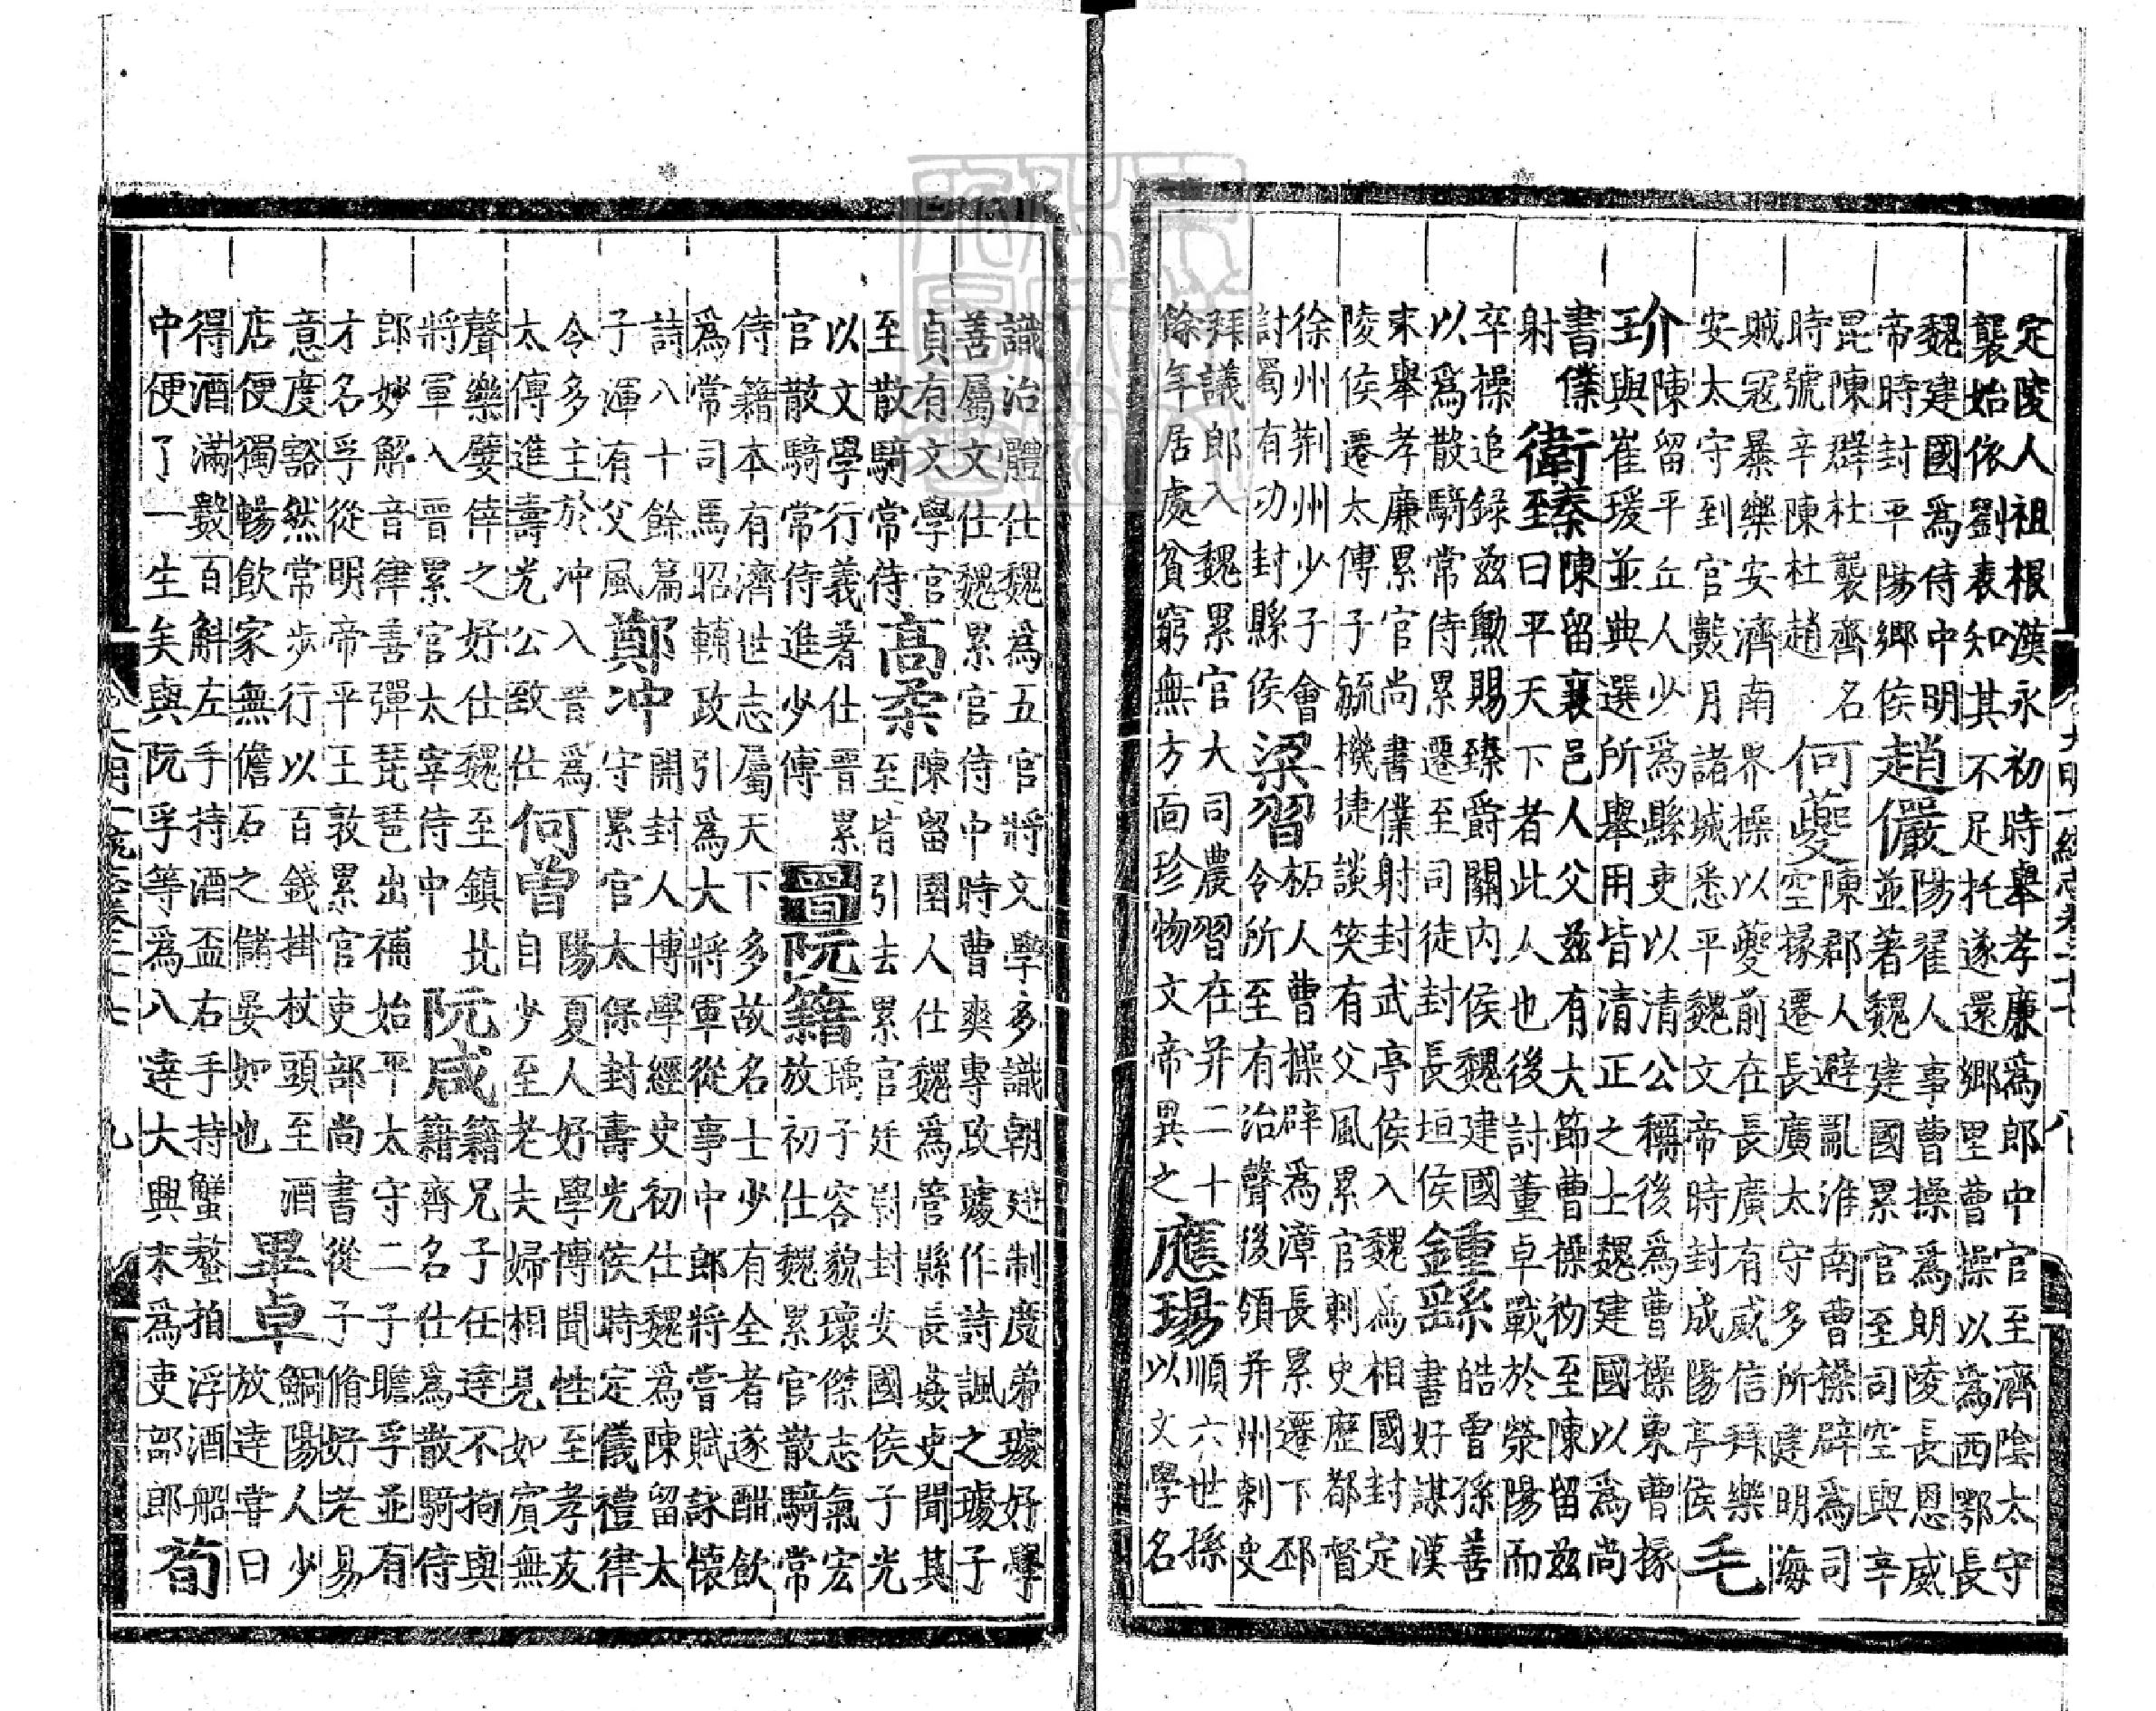 定陵人祖根漢永初時舉孝廉爲郎中官至濟隂太守
襲始依劉表知其不足托遂還鄉里曹操以爲西鄂長
魏建國爲侍中明
帝時封平陽鄉侯
趙儼
陽翟人事曹操爲朗陵長恩威
並著魏建國累官至司空與辛
毘陳群杜襲齊名
時號辛陳杜趙
何夔
陳郡人避亂淮南曹操辟爲司
空掾遷長廣太守多所建明海
賊寇暴樂安濟南界操以夔前在長廣有威信拜樂
安太守到官數月諸城悉平魏文帝時封成陽亭侯
毛
玠
陳留平丘人少爲縣吏以清公稱後爲曹操東曹掾
與崔瑗並典選所舉用皆清正之士魏建國以爲尚
書僕
射
衛臻
陳留襄邑人父兹有大節曹操初至陳留兹
至曰平天下者此人也後討董卓戰於滎陽而
卒操追録兹勲賜臻爵關内侯魏建國
以爲散騎常侍累遷至司徒封長垣侯
鍾繇
皓曾孫善
書好謀漢
末舉孝廉累官尚書僕射封武亭侯入魏爲相國封定
陵侯遷太傅子毓機捷談笑有父風累官刺史歷都督
徐州荆州少子會
討蜀有功封縣侯
梁習
柘人曹操辟爲漳長累遷下邳
令所至有治聲後領并州刺史
拜議郎入魏累官大司農習在并二十
餘年居處貧窮無方面珍物文帝異之
應瑒
順六世孫
以文學名
大明一統志卷二十七 八
識治體仕魏爲五官將文學多識朝廷制度弟璩好學
善屬文仕魏累官侍中時曹爽專政璩作詩諷之璩子
貞有文學官
至散騎常侍
高柔
陳留圉人仕魏爲管縣長姦吏聞其
至皆引去累官廷尉封安國侯子光
以文學行義著仕晋累
官散騎常侍進少傅
晋
阮籍
瑀子容貌瓌傑志氣宏
放初仕魏累官散騎常
侍籍本有濟世志屬天下多故名士少有全者遂酣飲
爲常司馬昭輔政引爲大將軍從事中郎將嘗賦詠懷
詩八十餘篇
子渾有父風
鄭冲
開封人博學經史初仕魏爲陳留太
守累官太保封壽光侯時定儀禮律
令多主於冲入晋爲
太傅進壽光公致仕
何曾
陽夏人好學博聞性至孝友
自少至老夫婦相見如賓無
聲樂嬖倖之好仕魏至鎮北
將軍入晋累官太宰侍中
阮咸
籍兄子任達不拘與
籍齊名仕爲散騎侍
郎妙解音律善彈琵琶出補始平太守二子瞻孚並有
才名孚從明帝平王敦累官吏部尚書從子脩好老易
意度豁然常步行以百錢掛杖頭至酒
店便獨暢飲家無儋石之儲晏如也
畢卓
鮦陽人少
放達嘗曰
得酒滿數百斛左手持酒盃右手持蟹螯拍浮酒船
中便了一生矣與阮孚等爲八達大興末爲吏部郎
荀
大明一統志卷二十七 九